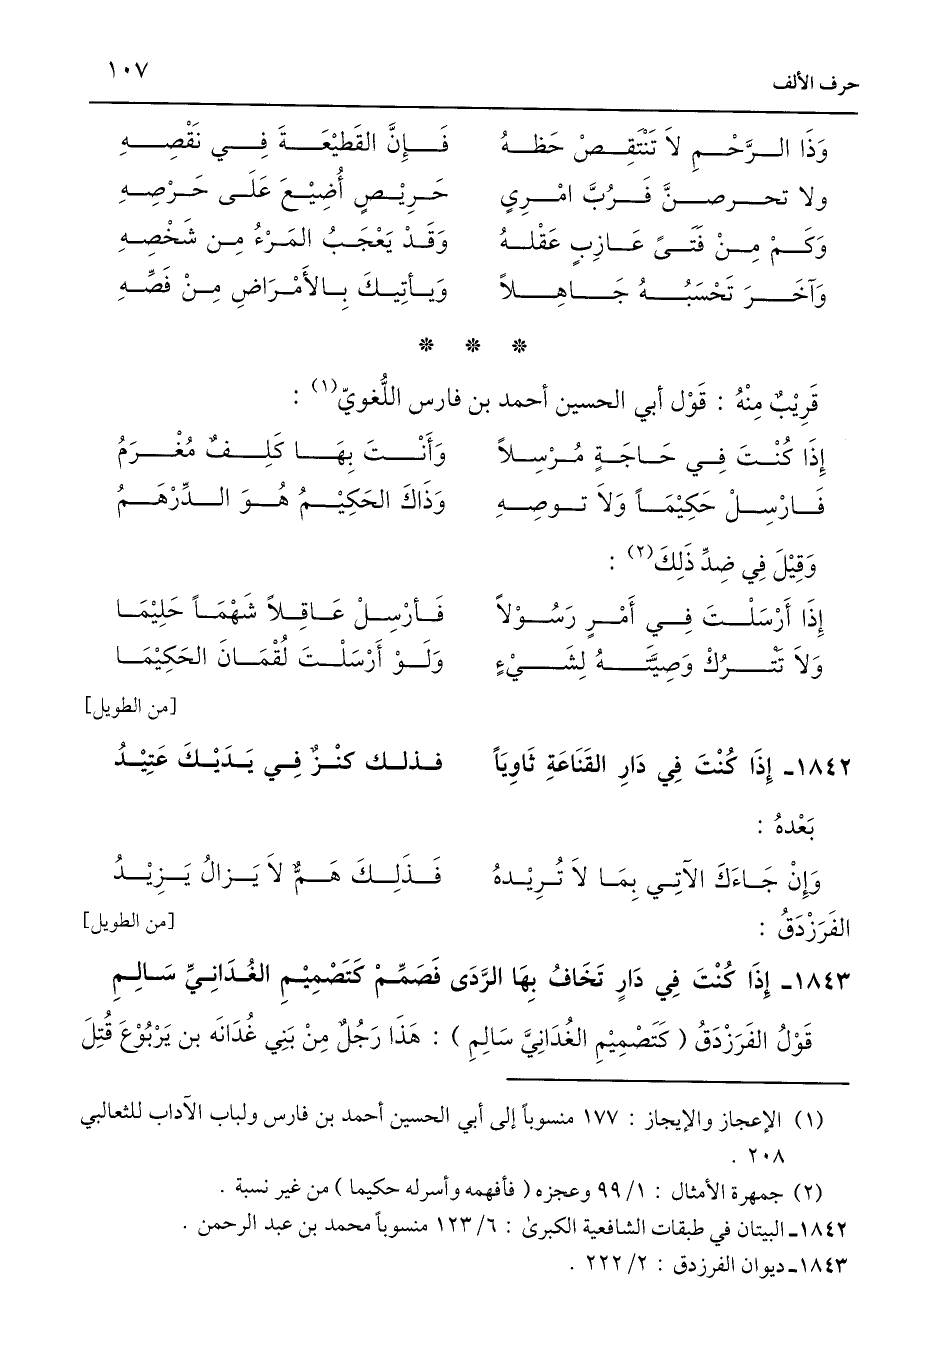 حرف الألف ١٠٧
وَذَا الرَّحْمِ لاَ تَنْتَقِصْ حَظهُ فَإِنَّ القَطِيْعَةَ فِي نَقْصِهِ
ولا تحرصنَّ فَرُبَّ امْرِيٍ حَرِيْصٍ أُضِيْعَ عَلَى حَرْصِهِ
وَكَمْ مِنْ فَتَىً عَازِبٍ عَقْلهُ وَقَدْ يَعْجَبُ المَرْءُ مِن شَخْصِهِ
وَآخَرَ تَحْسَبُهُ جَاهِلاً وَيأتِيكَ بِالأَمْرَاضِ مِنْ فَصِّهِ
* * *
قَرِيْبٌ مِنْهُ : قَوْل أبي الحسين أحمد بن فارس اللُّغويّ(١) :
إِذَا كُنْتَ فِي حَاجَةٍ مُرْسِلاً وَأَنْتَ بِهَا كَلِفٌ مُغْرَمُ
فَارْسِلْ حَكِيْمَاً وَلاَ توصِهِ وَذَاكَ الحَكِيْمُ هُوَ الدِّرْهَمُ
وَقِيْلَ فِي ضِدِّ ذَلِكَ(٢) :
إِذَا أَرْسَلْتَ فِي أَمْرٍ رَسُوْلاً فَأرْسِلْ عَاقِلاً شَهْمَاً حَلِيْمَا
وَلاَ تَتْرُكْ وَصِيَّتهُ لِشَيْءٍ وَلَوْ أَرْسَلْتَ لُقْمَانَ الحَكِيْمَا
[من الطويل]
١٨٤٢ـ إِذَا كُنْتَ فِي دَارِ القَنَاعَةِ ثَاوِيَاً فذلك كنْزٌ فِي يَدَيْكَ عَتِيْدُ
بَعْدهُ :
وَإِنْ جَاءَكَ الآتِي بِمَا لاَ تُرِيْدهُ فَذَلِكَ هَمٌّ لاَ يَزالُ يَزِيْدُ
الفَرَزْدَقُ : [من الطويل]
١٨٤٣ـ إِذَا كُنْتَ فِي دَارٍ تَخَافُ بِهَا الرَّدَى فَصَمِّمْ كَتَصْمِيْمِ الغُدَانِيِّ سَالِمِ
قَوْلُ الفَرَزْدَقُ ( كَتَصْمِيْمِ الغُدَانِيَّ سَالِمِ ) : هَذَا رَجُلٌ مِنْ بَنِي غُدَانَه بن يَرْبُوْعَ قُتِلَ
(١) الإعجاز والإيجاز : ١٧٧ منسوباً إلى أبي الحسين أحمد بن فارس ولباب الآداب للثعالبي
٢٠٨ .
(٢) جمهرة الأمثال : ١/ ٩٩ وعجزه ( فأفهمه وأسرله حكيما ) من غير نسبة .
١٨٤٢ـ البيتان في طبقات الشافعية الكبرىٰ : ٦/ ١٢٣ منسوباً محمد بن عبد الرحمن .
١٨٤٣ـ ديوان الفرزدق : ٢/ ٢٢٢ .